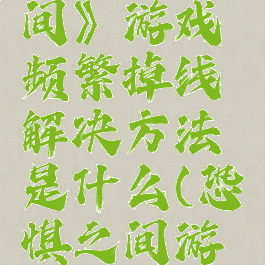 间》游戏
频繁掉线
解决方法
是什么(恐
惧之间游